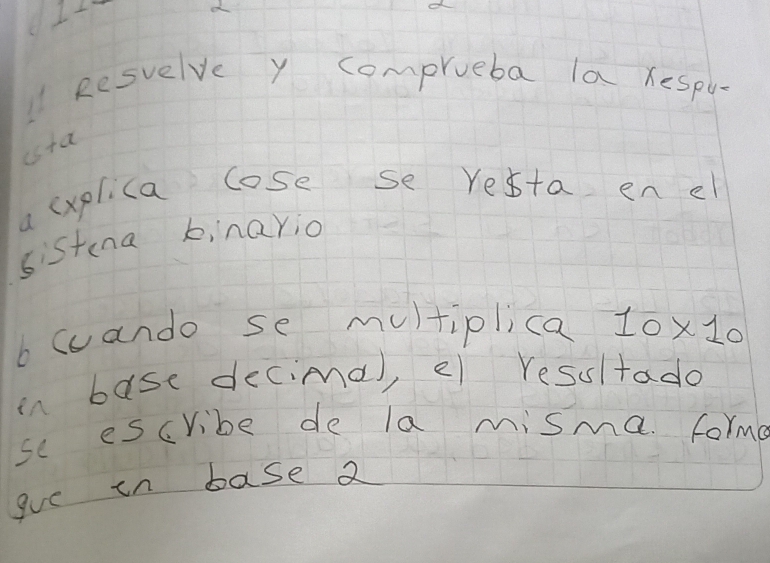 11 Resuelve y comprueba la respu-
esta
a explica cose se resta en el
sistena binario
b cuando se multiplica 10x10
en base decimal, el resultado
se escribe de la misma. forma
que en base 2